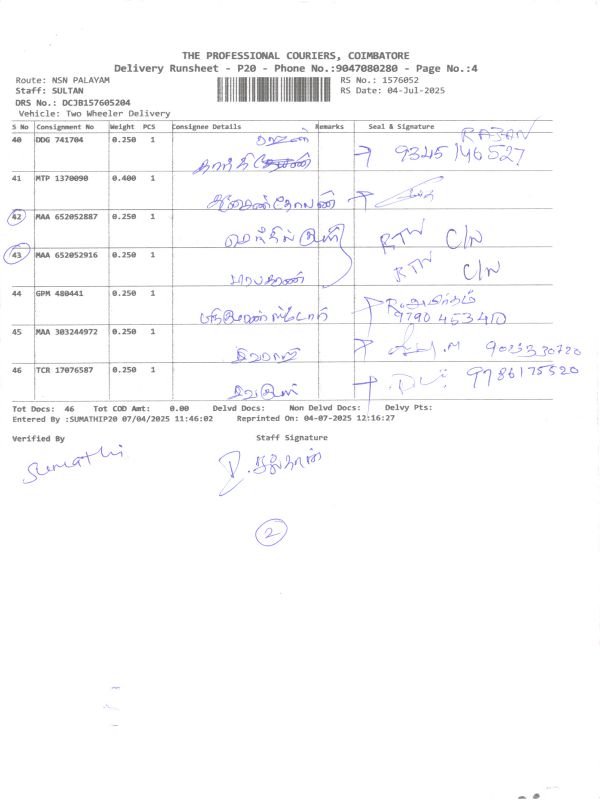 THE PROFESSIONAL COURIERS, COIMBATORE
Delivery Runsheet - P20 - Phone No.:9047080280 - Page No.:4
Route: NSN PALAYAM RS No.: 1576052
Staff: SULTAN RS Date: 04-Jul-2025
DRS No.: DCJB157605204
Vehicle: Two Wheeler Delivery
S No Consignment No Weight PCS Consignee Details Remarks Seal & Signature
RAJAN
40 DDG 741704 0.250 1 ராஜன் 9345146527
41 MTP 1370090 0.400 1
42 MAA 652052887 0.250 1 RTN C/N
43 MAA 652052916 0.250 1 RTN C/N
44 GPM 480441 0.250 1
97904 53410
45 MAA 303244972 0.250 1
46 TCR 17076587 0.250 1 9786175520
Tot Docs: 46 Tot COD Amt: 0.00 Delvd Docs: Non Delvd Docs: Delvy Pts:
Entered By :SUMATHIP20 07/04/2025 11:46:02 Reprinted On: 04-07-2025 12:16:27
Verified By Staff Signature
Sumathi
2